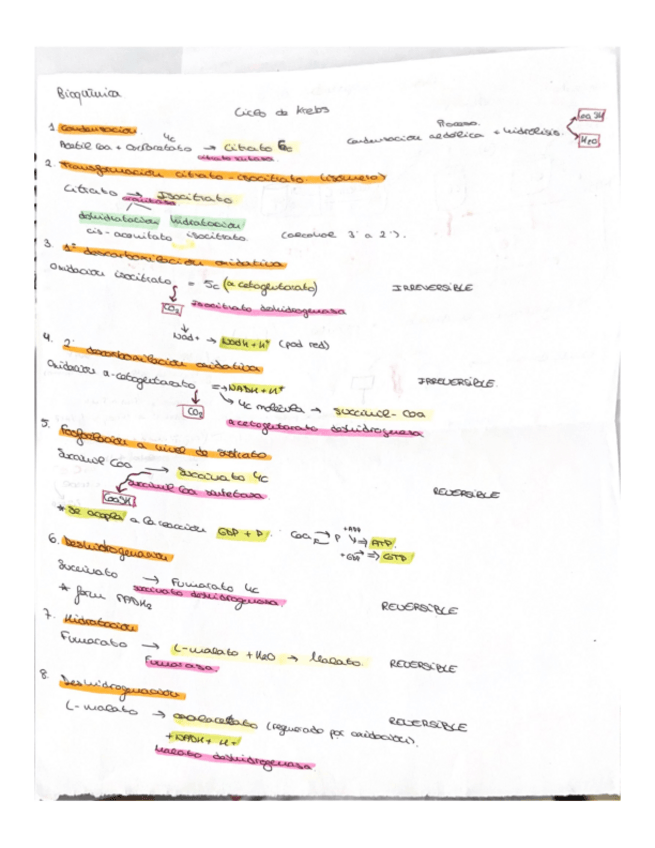 Bioquímica
Ciclo de Krebs
1. Condensación.
Proceso.
Condensación aldólica + hidrólisis.
CoaSH
H2O
4c
Acetil Coa + Oxalacetato → Citrato 6c
citrato sintasa
2. Transformación citrato isocitrato (isómero)
Citrato → Isocitrato
aconitasa
deshidratación hidratación
cis-aconitato isocitrato (alcohol 3º a 2º).
3. 1ª descarboxilación oxidativa
Oxidación isocitrato = 5c (α cetoglutarato) IRREVERSIBLE
CO2 Isocitrato deshidrogenasa
Nad+ → NadH + H+ (pod red)
4. 2ª descarboxilación oxidativa
Oxidación α-cetoglutarato =→ NADH + H+ IRREVERSIBLE.
CO2 4c molécula → Succinil-Coa
α cetoglutarato deshidrogenasa
5. Fosforilación a nivel de sustrato
Succinil Coa → Succinato 4c
CoaSH Succinil Coa sintetasa. REVERSIBLE
* Se acopla a la reacción GDP + P. Coa P +ADP ⇒ ATP.
+GDP ⇒ GTP
6. Deshidrogenación
Succinato → Fumarato 4c
Succinato deshidrogenasa.
* form FADH2 REVERSIBLE
7. Hidratación
Fumarato → L-malato + H2O → Malato. REVERSIBLE
Fumarasa.
8. Deshidrogenación
L-malato → oxalacetato (regenerado por oxidación). REVERSIBLE
+ NADH + H+
Malato deshidrogenasa.